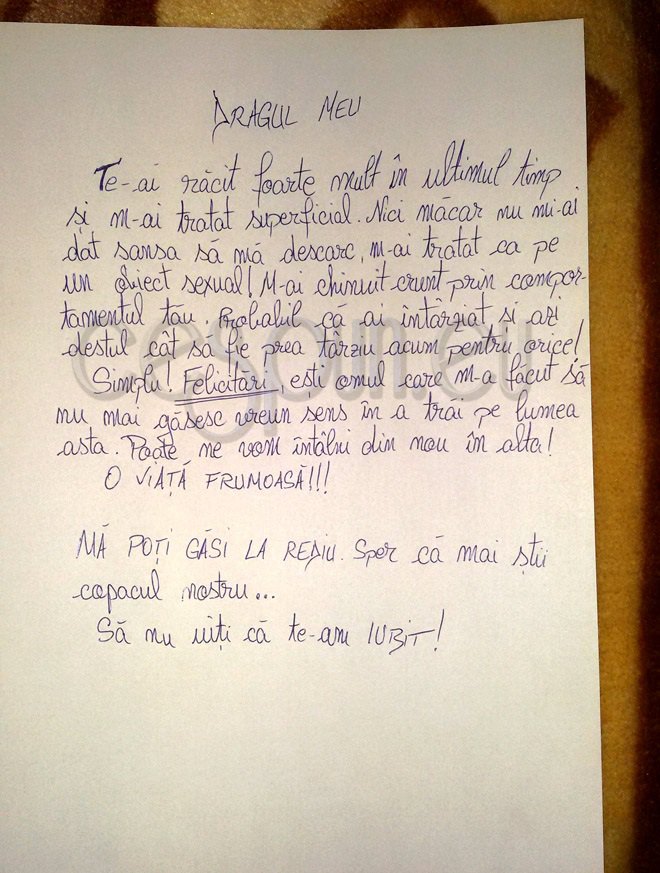 DRAGUL MEU
Te-ai răcit foarte mult în ultimul timp
și m-ai tratat superficial. Nici măcar nu mi-ai
dat sansa să mă descarc, m-ai tratat ca pe
un obiect sexual! M-ai chinuit crunt prin compor-
tamentul tău. Probabil că ai întârziat si azi
destul cât să fie prea târziu acum pentru orice!
Simplu! Felicitări, ești omul care m-a făcut să
nu mai găsesc vreun sens în a trăi pe lumea
asta. Poate ne vom întâlni din nou în alta!
O VIAȚĂ FRUMOASĂ!!!
MĂ POȚI GĂSI LA REDIU. Sper că mai știi
copacul nostru...
Să nu uiți că te-am IUBIT!